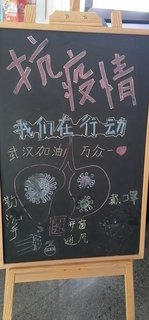 抗疫情
我们在行动
武汉加油 万众一
勤洗手
戴口罩
开窗通风